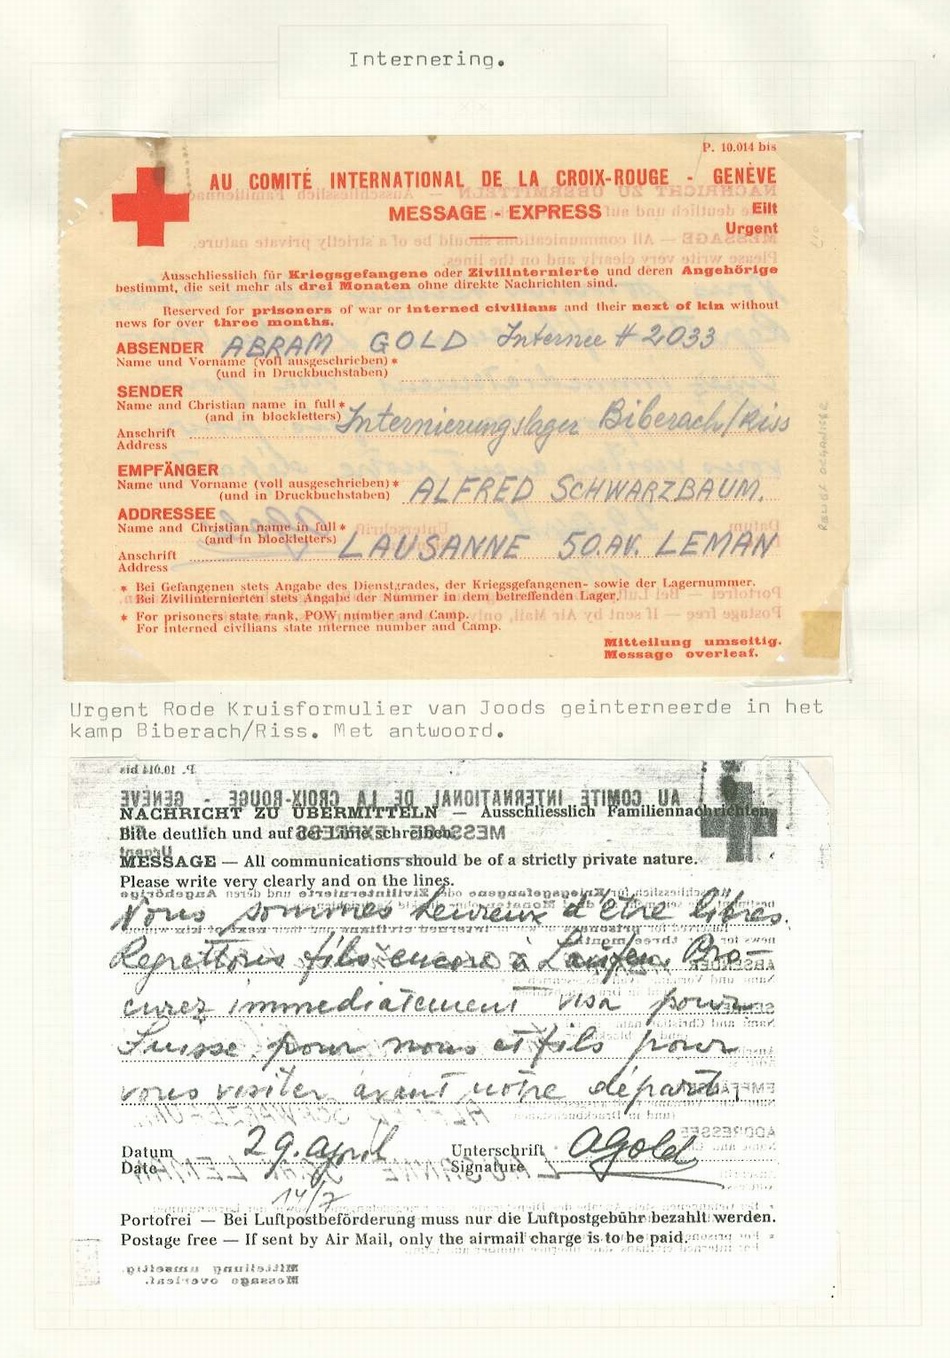 Internering.
P. 10.014 bis
AU COMITÉ INTERNATIONAL DE LA CROIX-ROUGE - GENÈVE
MESSAGE - EXPRESS
Eilt
Urgent
Ausschliesslich für Kriegsgefangene oder Zivilinternierte und deren Angehörige
bestimmt, die seit mehr als drei Monaten ohne direkte Nachrichten sind.
Reserved for prisoners of war or interned civilians and their next of kin without
news for over three months.
ABSENDER ABRAM GOLD Internee # 2033
Name und Vorname (voll ausgeschrieben)*
(und in Druckbuchstaben)
SENDER
Name and Christian name in full*
(and in blockletters)
Internierungslager Biberach/Riss
Anschrift
Address
EMPFÄNGER
Name und Vorname (voll ausgeschrieben)*
(und in Druckbuchstaben)
ALFRED SCHWARZBAUM.
ADDRESSEE
Name and Christian name in full*
(and in blockletters)
Anschrift LAUSANNE 50.AV. LEMAN
Address
* Bei Gefangenen stets Angabe des Dienstgrades, der Kriegsgefangenen- sowie der Lagernummer.
Bei Zivilinternierten stets Angabe der Nummer in dem betreffenden Lager.
* For prisoners state rank, POW number and Camp.
For interned civilians state internee number and Camp.
Mitteilung umseitig.
Message overleaf.
Urgent Rode Kruisformulier van Joods geinterneerde in het
kamp Biberach/Riss. Met antwoord.
NACHRICHT ZU ÜBERMITTELN — Ausschliesslich Familiennachrichten.
Bitte deutlich und auf der Linie schreiben.
MESSAGE — All communications should be of a strictly private nature.
Please write very clearly and on the lines.
Nous sommes heureux d'être libres.
Regrettons fils encore à Laufen. Pro-
curez immediatement visa pour
Suisse pour nous et fils pour
vous visiter avant notre départ.
Datum 29. April Unterschrift AGold
Date Signature
14/7
Portofrei — Bei Luftpostbeförderung muss nur die Luftpostgebühr bezahlt werden.
Postage free — If sent by Air Mail, only the airmail charge is to be paid.